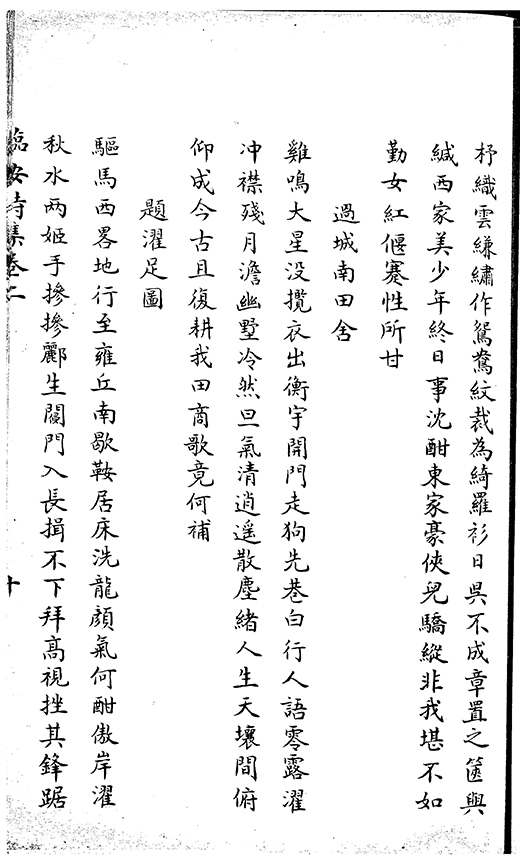 杼織雲縑繡作鴛鴦紋裁為綺羅衫日昃不成章置之篋與
緘西家美少年終日事沈酣東家豪俠兒驕縱非我堪不如
勤女紅偃蹇性所甘
過城南田舍
雞鳴大星没攬衣出衡宇開門走狗先巷白行人語零露濯
冲襟殘月澹幽墅冷然旦氣清逍遥散塵緒人生天壤間俯
仰成今古且復耕我田商歌竟何補
題濯足圖
驅馬西畧地行至雍丘南歇鞍居床洗龍顔氣何酣傲岸濯
秋水两姬手摻摻酈生闥門入長揖不下拜髙視挫其鋒踞
臨安詩集卷二
十